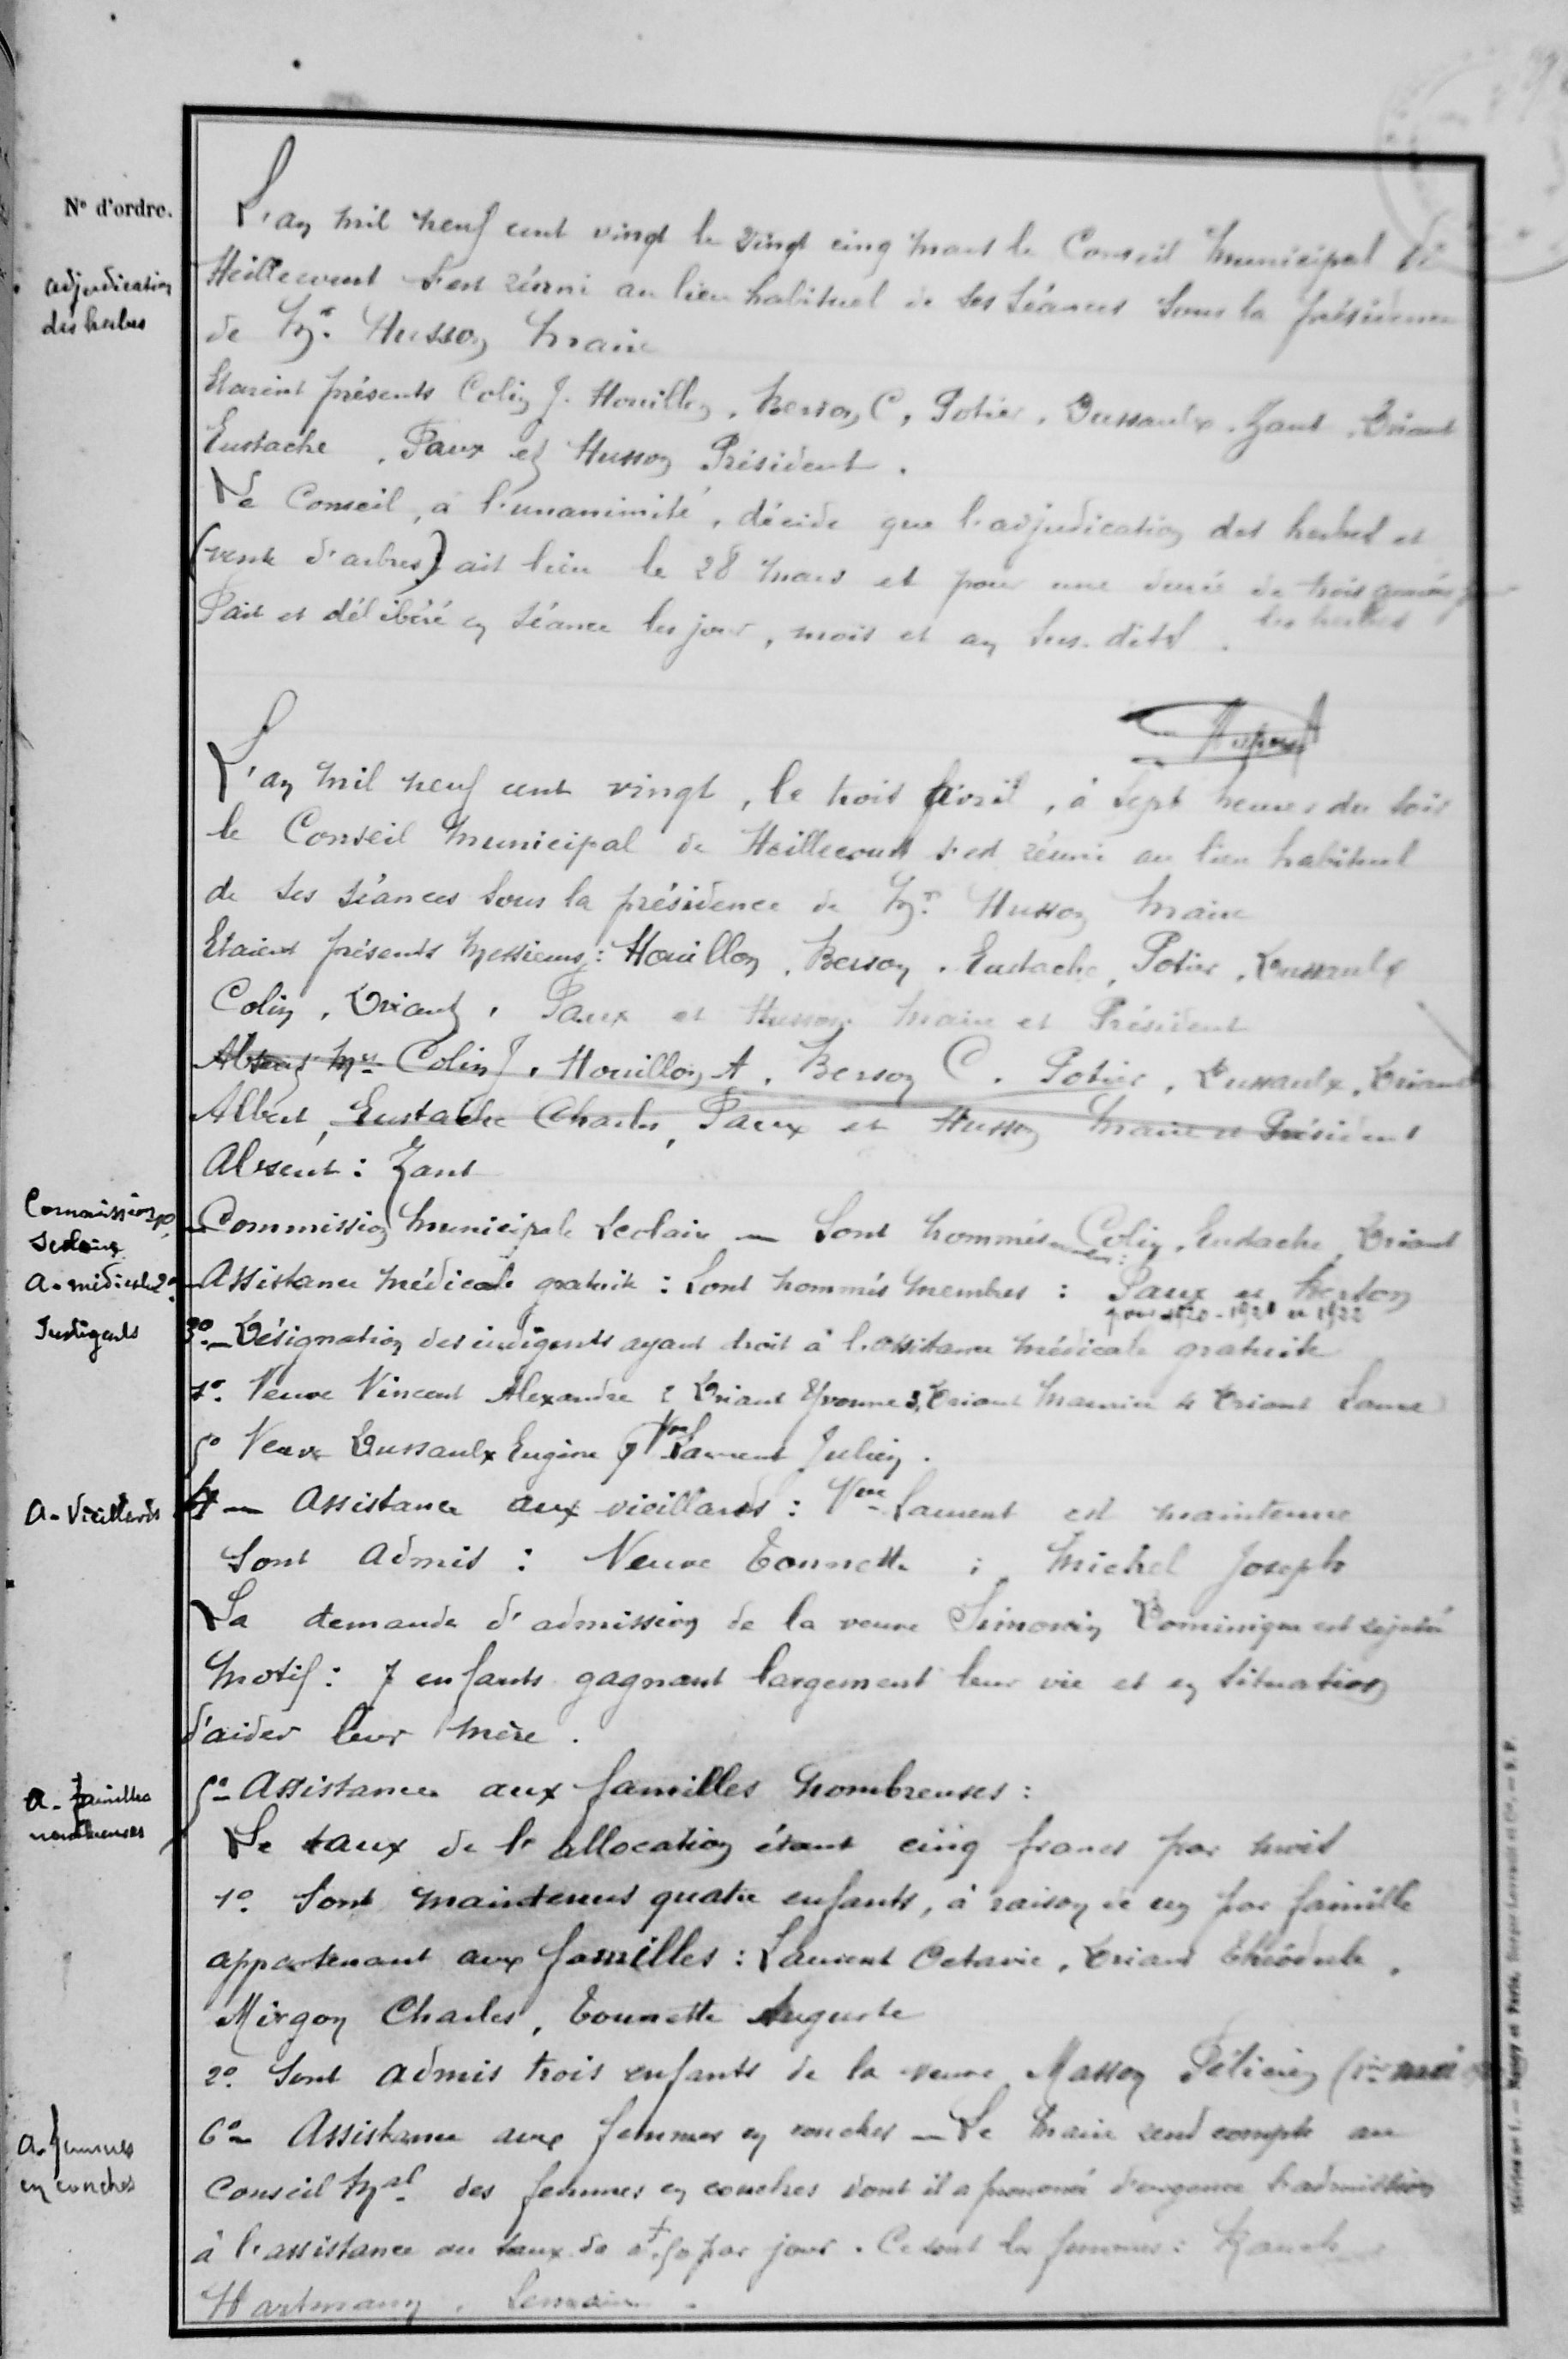 N° d'ordre.
adjudication
des herbes
L'an mil neuf cent vingt le vingt cinq mars le Conseil Municipal de
Heillecourt s'est réuni au lieu habituel de ses séances sous la présidence
de Mr. Husson Maire
Etaient présents Colin J. Houillon, Berson C, Potier, Dussaulx, Zant, Briant
Eustache, Paux et Husson Président.
Le Conseil, à l'unanimité, décide que l'adjudication des herbes et
(vente d'arbres) ait lieu le 28 mars et pour une durée de trois années pour
les herbes
Fait et délibéré en séance les jour, mois et an sus-dits.
L'an mil neuf cent vingt, le trois Avril, à sept heures du soir
le Conseil Municipal de Heillecourt s'est réuni au lieu habituel
de ses séances sous la présidence de Mr. Husson Maire
Etaient présents Messieurs: Houillon, Berson, Eustache, Potier, Dussaulx
Colin, Briant, Paux et Husson Maire et Président
Absents Mrs Colin J, Houillon A, Berson C. Potier, Dussaulx, Briant
Albert, Eustache Charles, Paux et Husson Maire et Président
Absent: Zant
Commission
Scolaire
1° Commission Municipale Scolaire — Sont nommés membres: Colin, Eustache, Briant
A. médicale
2° — Assistance médicale gratuite: Sont nommés membres: Paux et Berson
pour 1920-1921 et 1922
Indigents
3° — Désignation des indigents ayant droit à l'assistance médicale gratuite
1° Veuve Vincent Alexandre 2 Briant Yvonne 3, Briant Maurice 4 Briant Laure
5° Veuve Dussaulx Eugène Vve Laurent Julien.
A. Vieillards
4 — Assistance aux vieillards: Vve Laurent est maintenue
Sont Admis: Veuve Tounette; Michel Joseph
La demande d'admission de la veuve Simonin Dominique est rejetée
Motif: 7 enfants gagnant largement leur vie et en situation
d'aider leur mère.
A. familles
nombreuses
5° Assistance aux familles nombreuses:
Le taux de l'allocation étant cinq francs par mois
1° Sont maintenus quatre enfants, à raison de un par famille
appartenant aux familles: Laurent Octavie, Briant Théodule,
Mirgon Charles, Tounette Auguste
2° Sont admis trois enfants de la veuve Masson Félicien (1er mai
A. femmes
en couches
6° Assistance aux femmes en couches — Le Maire rend compte au
Conseil Mal des femmes en couches dont il a prononcé d'urgence l'admission
à l'assistance au taux de par jour. Ce sont les femmes:
Hartmann,